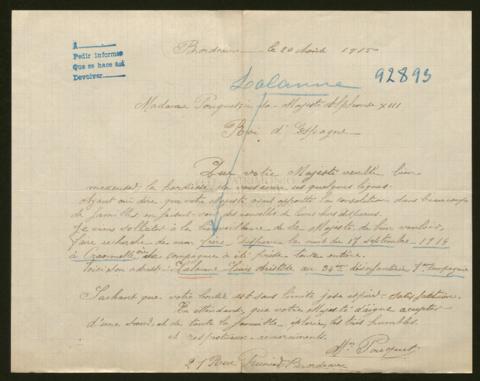 A
Pedir informes
Que se hace así
Devolver
Bordeaux le 20 Août 1915
Lalanne
92893
Madame Pouquet à sa Majesté Alphonse XIII
Roi d'Espagne
Que votre Majesté veuille bien
m'excuser la hardiesse de vous écrire ces quelques lignes
Ayant ouï dire que votre Majesté avait apporté la consolation dans beaucoup
de familles en faisant avoir des nouvelles de leurs chers disparus
Je viens solliciter à la bienveillance de sa Majesté de bien vouloir
faire recherche de mon frère disparu la nuit du 17 septembre 1914
à Craonnelle sa compagnie a été prise toute entière
Voici son adresse Lalanne Louis 34me d'infanterie compagnie
Sachant que votre bonté est sans limite j'ose espérer satisfaction
En attendant que votre Majesté daigne accepter
d'une sœur et de toute la famille, les très humbles
et respectueux remerciements
Mme Pouquet
21 Rue Bordeaux